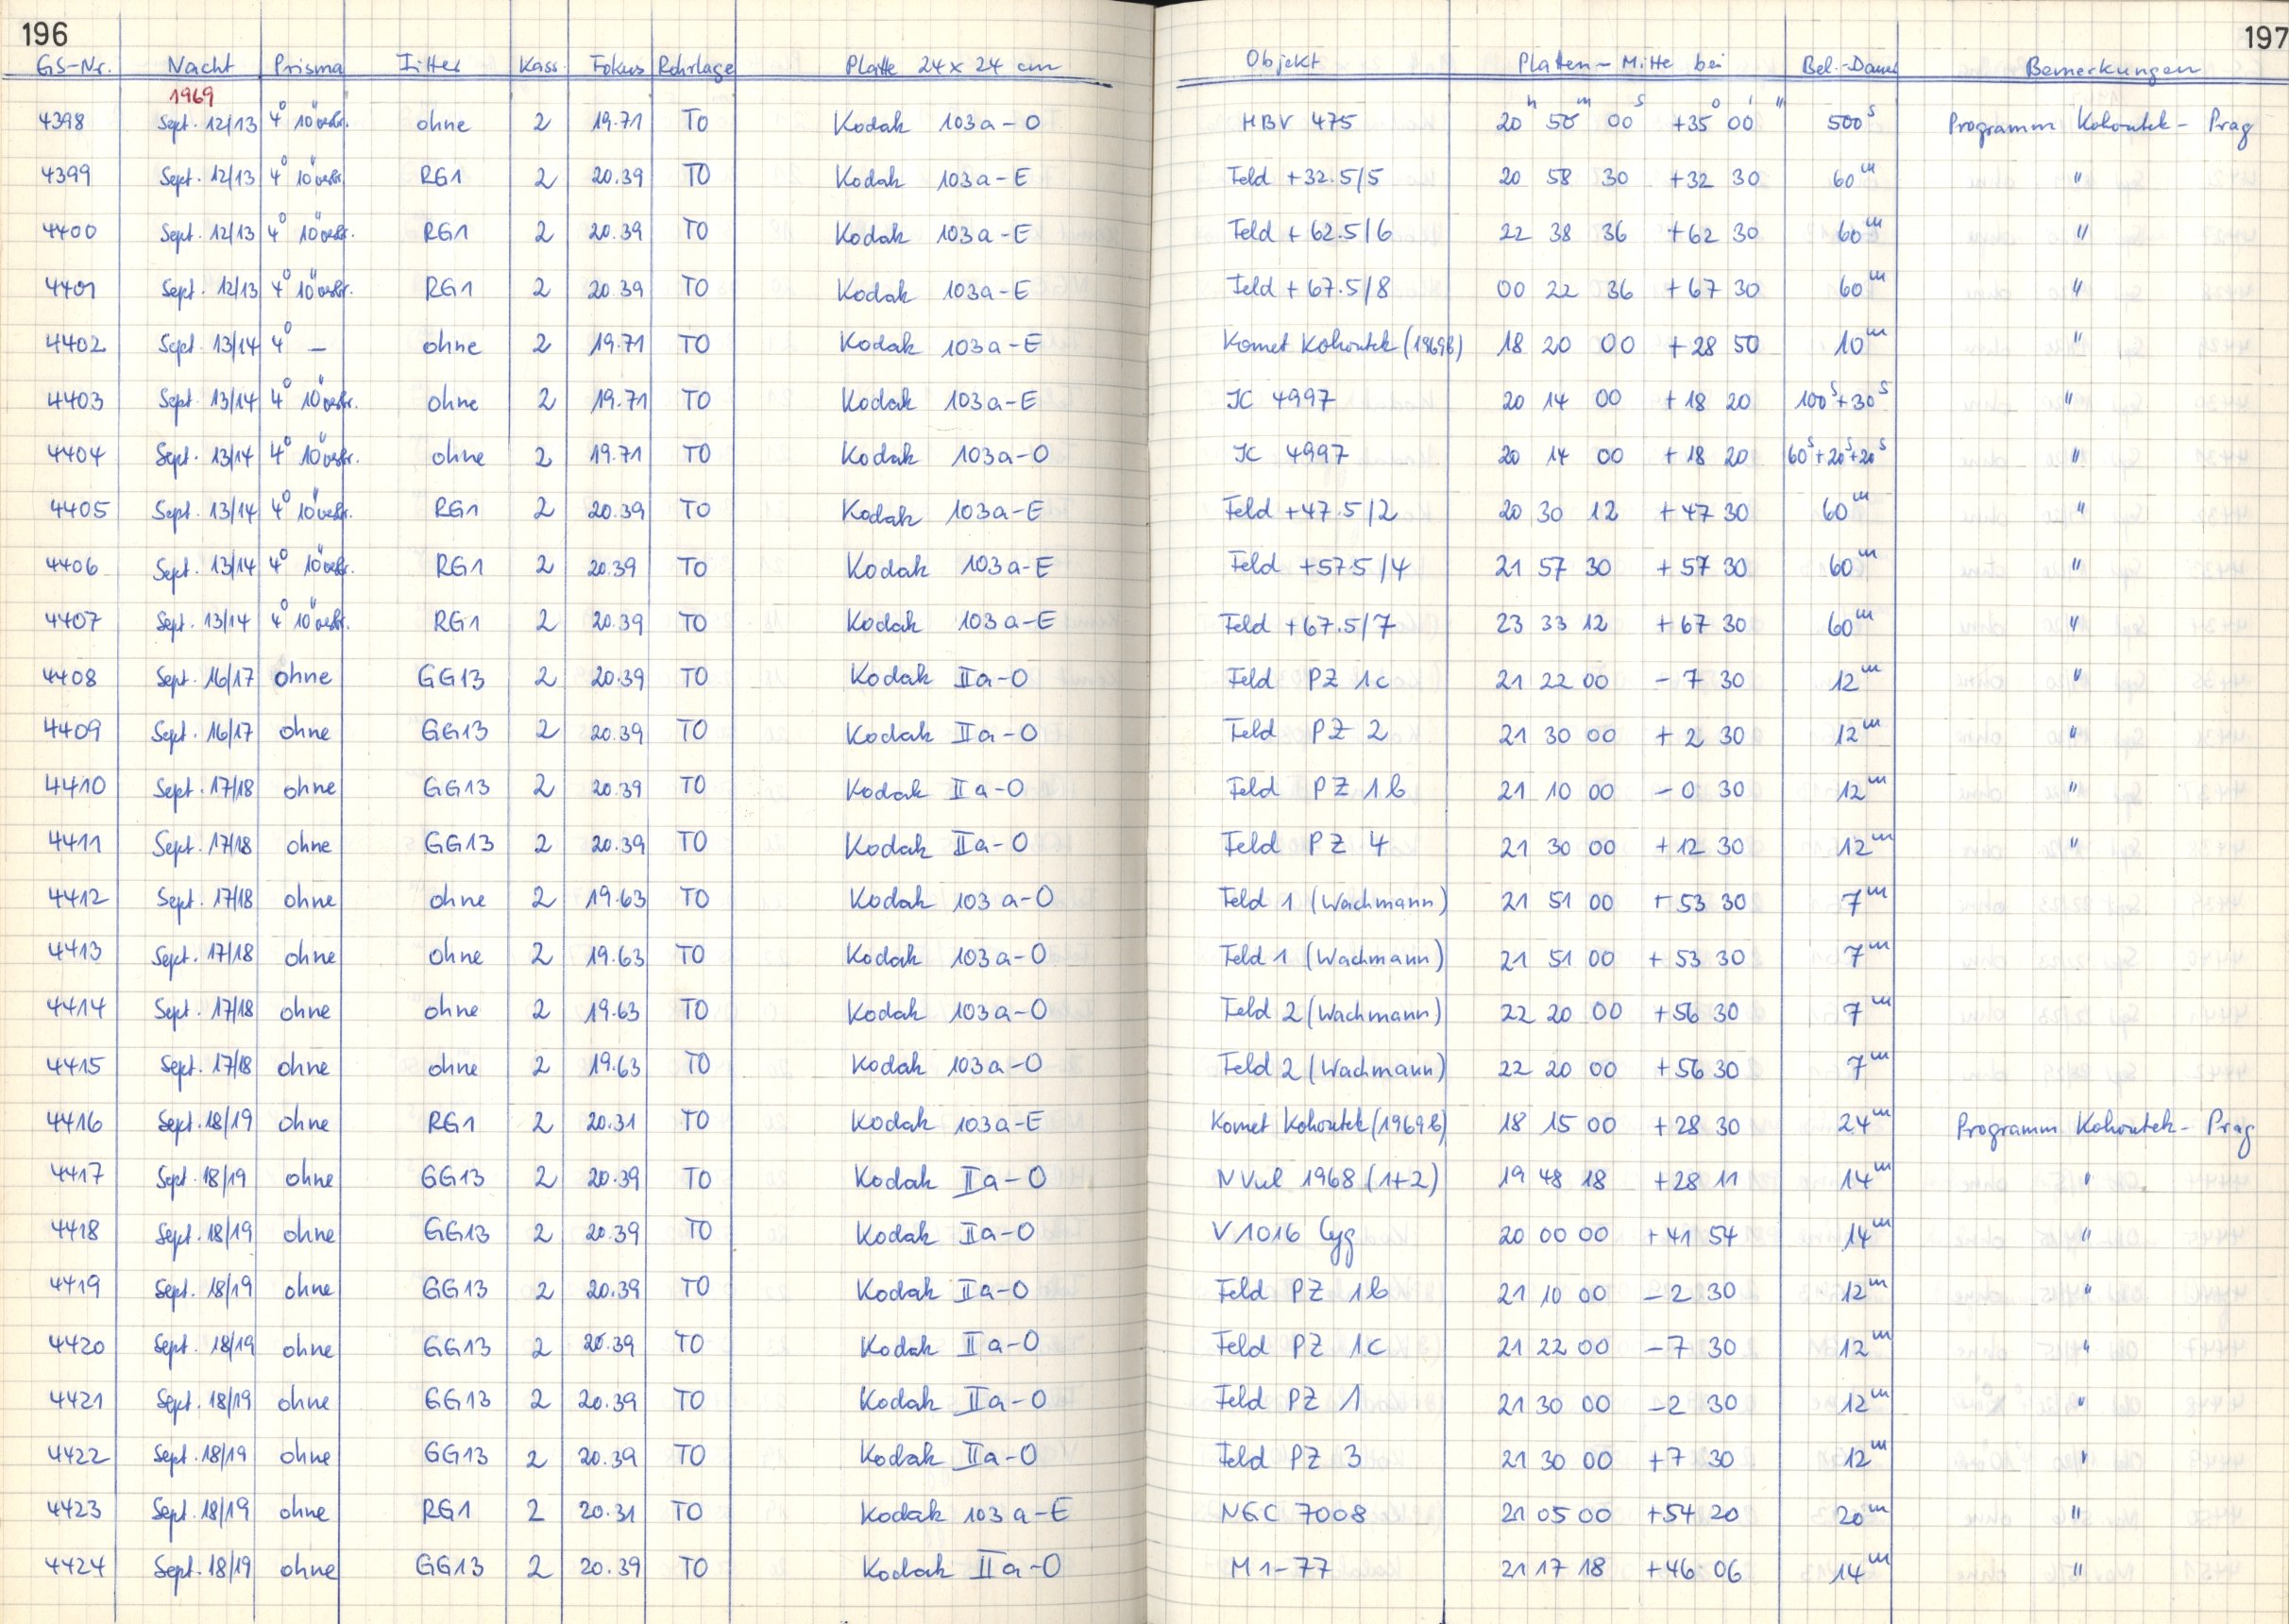 196 197
GS-Nr. Nacht Prisma Filter Kass. Fokus Rohrlage Platte 24 x 24 cm Objekt Platten-Mitte bei Bel.-Dauer Bemerkungen
1969
h m s o ' "
4398 Sept. 12/13 4° 10 ohne 2 19.71 TO Kodak 103a-O HBV 475 20 50 00 +35 00 500s Programm Kohoutek - Prag
4399 Sept. 12/13 4° 10 RG1 2 20.39 TO Kodak 103a-E Feld +32.5/5 20 58 30 +32 30 60m "
4400 Sept. 12/13 4° 10 RG1 2 20.39 TO Kodak 103a-E Feld +62.5/6 22 38 36 +62 30 60m "
4401 Sept. 12/13 4° 10 RG1 2 20.39 TO Kodak 103a-E Feld +67.5/8 00 22 36 +67 30 60m "
4402 Sept. 13/14 4° — ohne 2 19.71 TO Kodak 103a-E Komet Kohoutek (1969b) 18 20 00 +28 50 10m "
4403 Sept. 13/14 4° 10 ohne 2 19.71 TO Kodak 103a-E IC 4997 20 14 00 +18 20 100s+30s "
4404 Sept. 13/14 4° 10 ohne 2 19.71 TO Kodak 103a-O IC 4997 20 14 00 +18 20 60s+20s+20s "
4405 Sept. 13/14 4° 10 RG1 2 20.39 TO Kodak 103a-E Feld +47.5/2 20 30 12 +47 30 60m "
4406 Sept. 13/14 4° 10 RG1 2 20.39 TO Kodak 103a-E Feld +57.5/4 21 57 30 +57 30 60m "
4407 Sept. 13/14 4° 10 RG1 2 20.39 TO Kodak 103a-E Feld +67.5/7 23 33 12 +67 30 60m "
4408 Sept. 16/17 ohne GG13 2 20.39 TO Kodak IIa-O Feld PZ 1c 21 22 00 -7 30 12m "
4409 Sept. 16/17 ohne GG13 2 20.39 TO Kodak IIa-O Feld PZ 2 21 30 00 +2 30 12m "
4410 Sept. 17/18 ohne GG13 2 20.39 TO Kodak IIa-O Feld PZ 1b 21 10 00 -0 30 12m "
4411 Sept. 17/18 ohne GG13 2 20.39 TO Kodak IIa-O Feld PZ 4 21 30 00 +12 30 12m "
4412 Sept. 17/18 ohne ohne 2 19.63 TO Kodak 103a-O Feld 1 (Wachmann) 21 51 00 +53 30 7m
4413 Sept. 17/18 ohne ohne 2 19.63 TO Kodak 103a-O Feld 1 (Wachmann) 21 51 00 +53 30 7m
4414 Sept. 17/18 ohne ohne 2 19.63 TO Kodak 103a-O Feld 2 (Wachmann) 22 20 00 +56 30 7m
4415 Sept. 17/18 ohne ohne 2 19.63 TO Kodak 103a-O Feld 2 (Wachmann) 22 20 00 +56 30 7m
4416 Sept. 18/19 ohne RG1 2 20.31 TO Kodak 103a-E Komet Kohoutek (1969b) 18 15 00 +28 30 24m Programm Kohoutek - Prag
4417 Sept. 18/19 ohne GG13 2 20.39 TO Kodak IIa-O N Vul 1968 (1+2) 19 48 18 +28 11 14m "
4418 Sept. 18/19 ohne GG13 2 20.39 TO Kodak IIa-O V 1016 Cyg 20 00 00 +41 54 14m "
4419 Sept. 18/19 ohne GG13 2 20.39 TO Kodak IIa-O Feld PZ 1b 21 10 00 -2 30 12m "
4420 Sept. 18/19 ohne GG13 2 20.39 TO Kodak IIa-O Feld PZ 1c 21 22 00 -7 30 12m "
4421 Sept. 18/19 ohne GG13 2 20.39 TO Kodak IIa-O Feld PZ 1 21 30 00 -2 30 12m "
4422 Sept. 18/19 ohne GG13 2 20.39 TO Kodak IIa-O Feld PZ 3 21 30 00 +7 30 12m "
4423 Sept. 18/19 ohne RG1 2 20.31 TO Kodak 103a-E NGC 7008 21 05 00 +54 20 20m "
4424 Sept. 18/19 ohne GG13 2 20.39 TO Kodak IIa-O M 1-77 21 17 18 +46 06 14m "